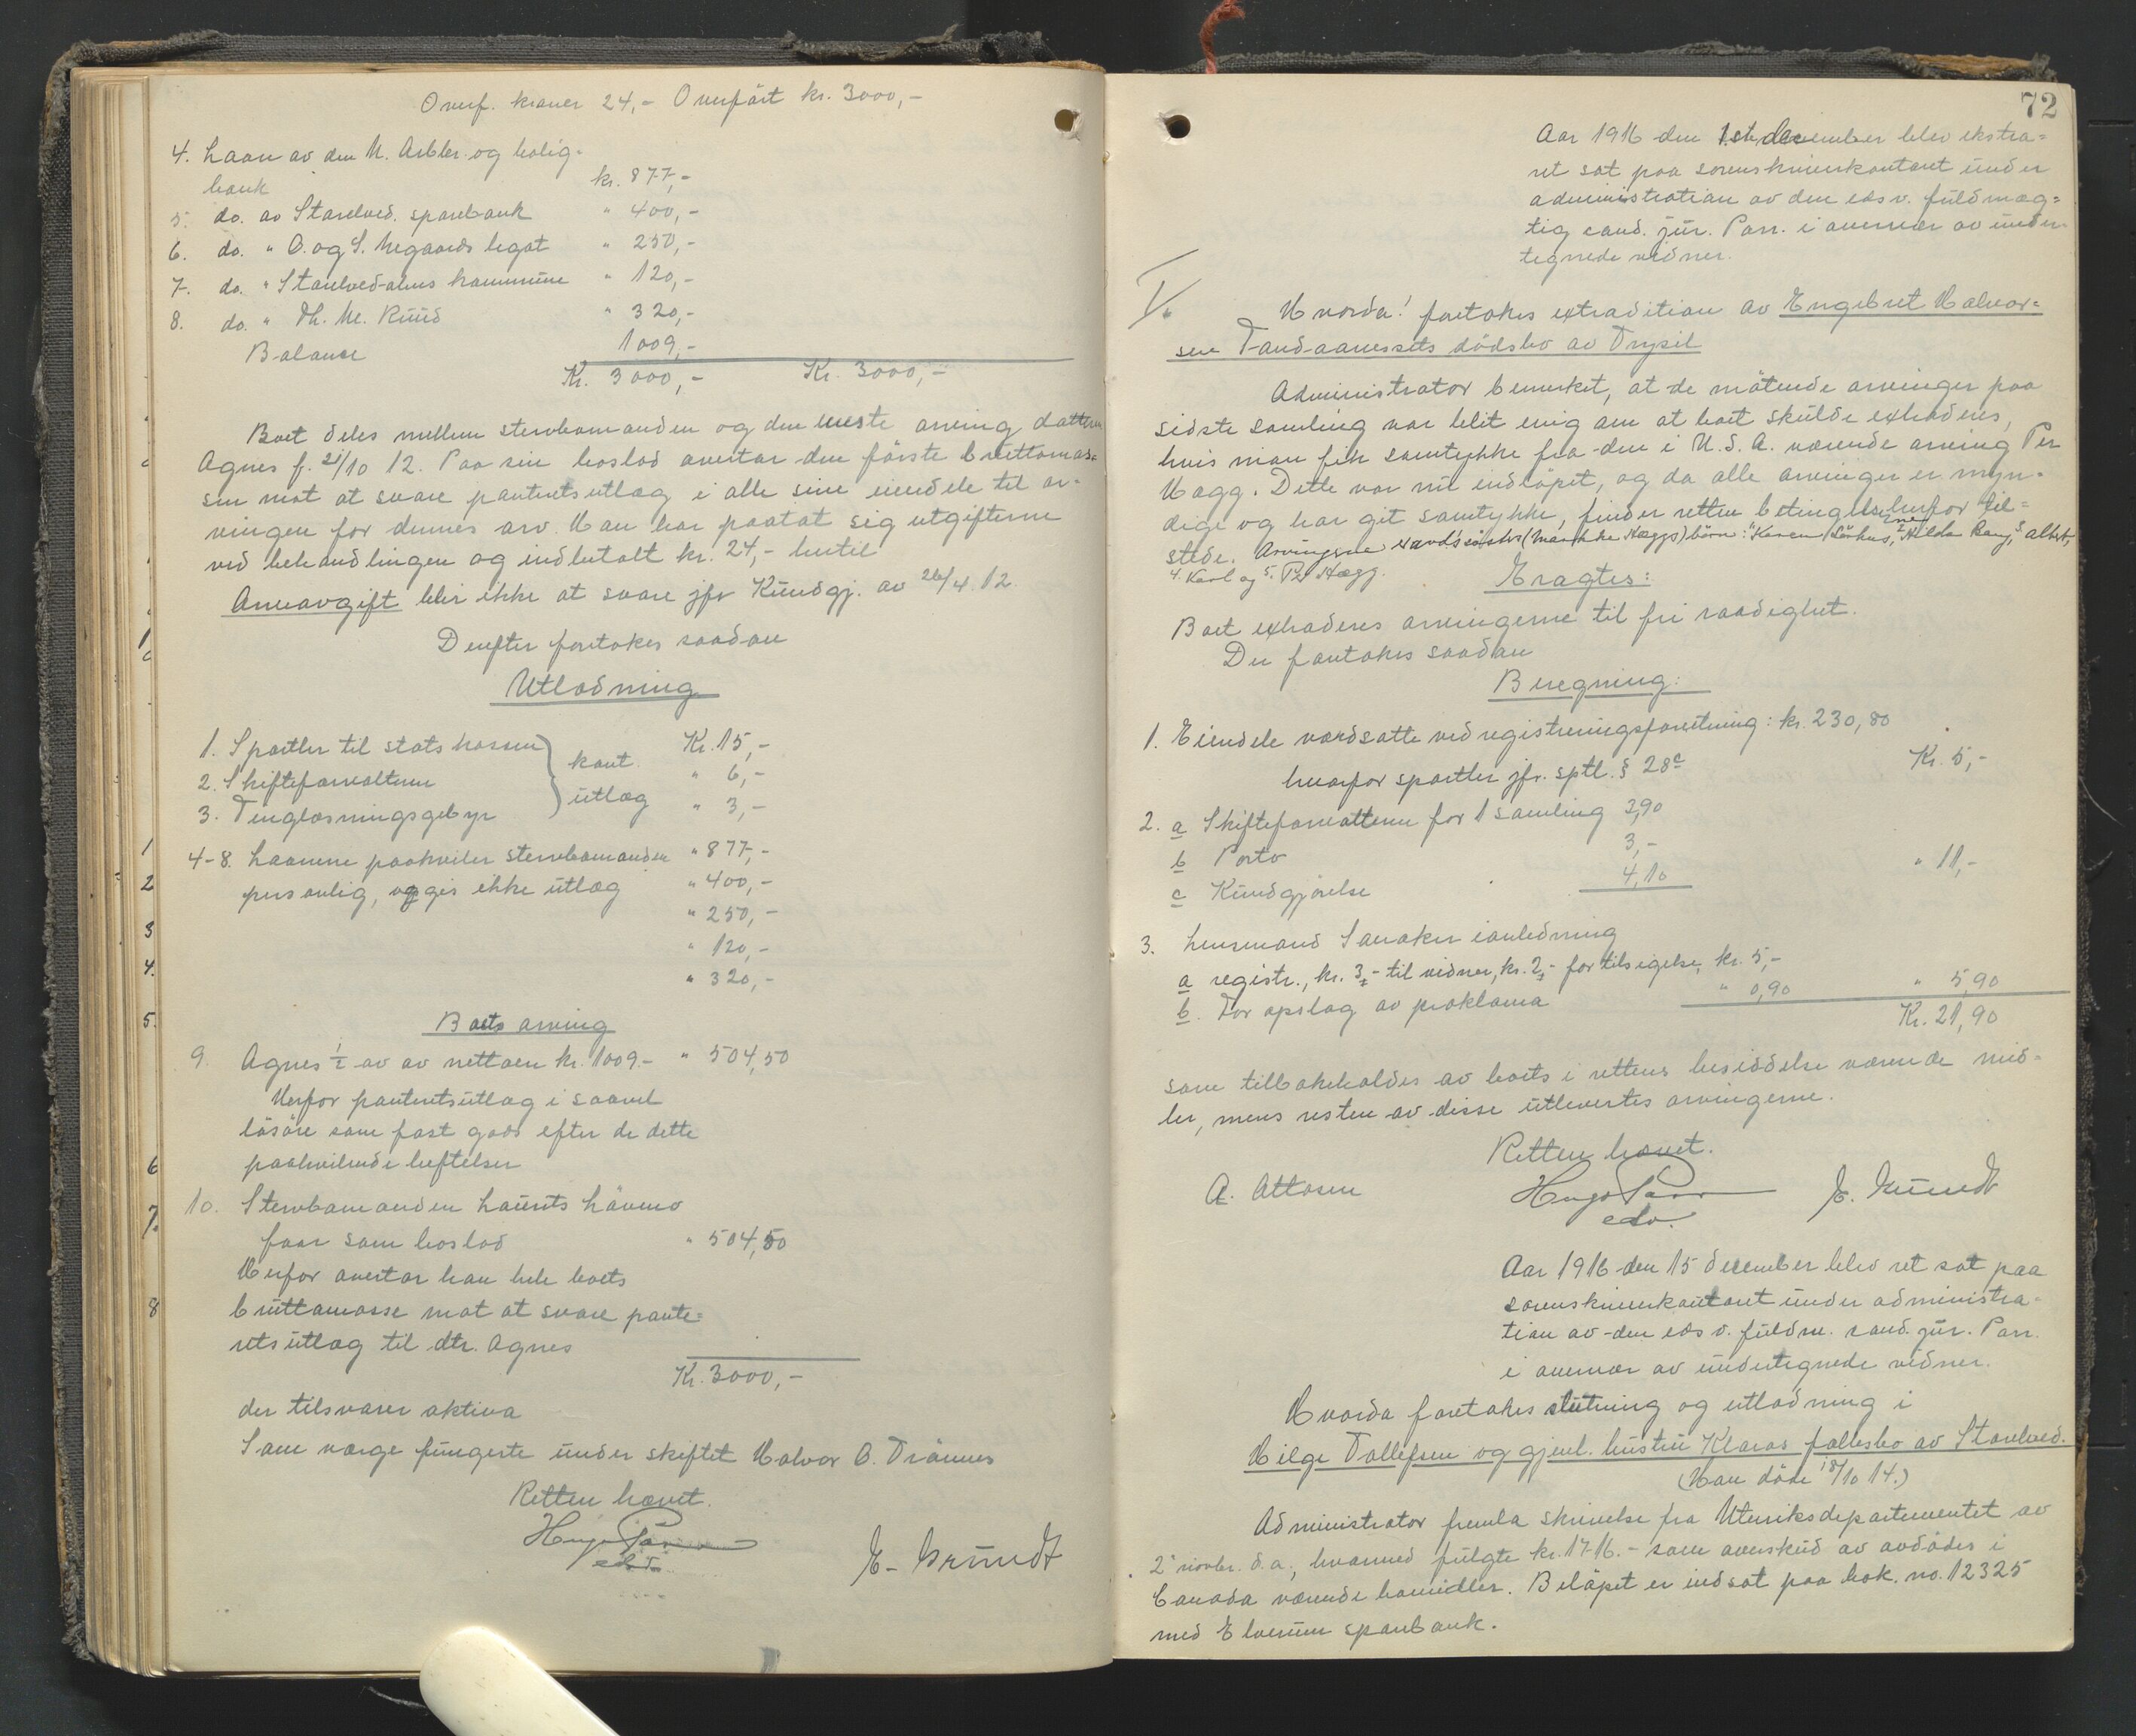 Overf. kroner 24,- Overført kr. 3000,-
4. Laan av den N. Arbler. og bolig-
bank kr. 877,-
5. do. av Starelved. sparebank " 400,-
6. do. " O. og S. Negaards legat " 250,-
7. do. " Starelved-alens kommune " 120,-
8. do. " Th. M. Ruud " 320,-
Balance 1009,-
Kr. 3000,- Kr. 3000,-
Boet deles mellem stervbomanden og den eneste arving datteren
Agnes f. 21/10 12. Paa sin boslod overtar den første bruttomas-
sen mot at svare panteretsutlæg i alle sine eiendele til ar-
vingen for dennes arv. Han har paatat sig utgifterne
ved behandlingen og indbetalt kr. 24,- hertil
Arveavgift blir ikke at svare jfr Kundgj. av 26/4 12.
Derefter foretokes saadan
Utlodning
1. Sportler til statskassen Kr. 15,-
2. Skifteforvalteren } kont. " 6,-
3. Tinglæsningsgebyr } utlæg " 3,-
4-8. Laanene paahviler stervbomanden " 877,-
personlig, og gis ikke utlæg " 400,-
" 250,-
" 120,-
" 320,-
Boets arving
9. Agnes ½ av av nettoen kr. 1009.- " 504,50
Herfor panteretsutlæg i saavel
løsøre som fast gods efter de dette
paahvilende heftelser
10. Stervbomanden Laurits Løvmo
faar som boslod " 504,50
Herfor overtar han hele boets
bruttomasse mot at svare pante-
retsutlæg til dtr. Agnes
Kr. 3000,-
der tilsvarer aktiva
Som værge fungerte under skiftet Halvor O. Trønnes
Retten hævet.
Hugo Parr
edsv.
E. Grundt
72
Aar 1916 den 1ste december blev ekstra-
ret sat paa sorenskriverkontoret under
administration av den edsv. fuldmæg-
tig cand. jur. Parr. i overvær av under-
tegnede vidner.
Hvorda! foretokes extradition av Engebret Halvor-
sen Tandaanessets dødsbo av Trysil
Administrator bemerket, at de møtende arvinger paa
sidste samling var blit enig om at boet skulde extraderes,
hvis man fik samtykke fra den i U.S.A. værende arving Per
Hagg. Dette var nu indløpet, og da alle arvinger er myn-
dige og har git samtykke, finder retten betingelserne herfor til-
stede. Arvingerne er avd's søsters (Marthe Hæggs) børn: 1. Karen Lørhus, 2. Hilda Rang, 3. Albert,
4. Karl og 5. Per Hægg.
Eragtes:
Boet extraderes arvingerne til fri raadighet.
Der foretokes saadan
Beregning:
1. Eiendele værdsatte ved registreringsforretning: kr. 230,80
hvorfor sportler jfr. sptl. § 28c Kr. 5,-
2. a Skifteforvalteren for 1 samling 3,90
b Porto 3,-
c Kundgjørelse 4,10 " 11,-
3. Lensmand Sanaker i anledning
a registr., kr. 3,- til vidner, kr. 2,- for tilsigelse, kr. 5,-
b. For opslag av proklama " 0,90 " 5,90
Kr. 21,90
som tilbakeholdes av boets i rettens besiddelse værende mid-
ler, mens resten av disse utlevertes arvingerne.
Retten hævet.
A. Ottosen Hugo Parr E. Grundt
edsv.
Aar 1916 den 15 december blev ret sat paa
sorenskriverkontoret under administra-
tion av den eds v. fuldm. cand. jur. Parr.
i overvær av undertegnede vidner.
Hvorda foretokes slutning og utlodning i
Helge Tollefsen og gjenl. hustru Klaras fællesbo av Starelved.
(Han døde 18/10 14.)
Administrator fremla skrivelse fra Utenriksdepartementet av
2 novbr. d.a., hvormed fulgte kr. 1716.- som overskud av avdødes i
Canada værende bomidler. Beløpet er indsat paa bok. no. 12325
med Elverum sparebank.